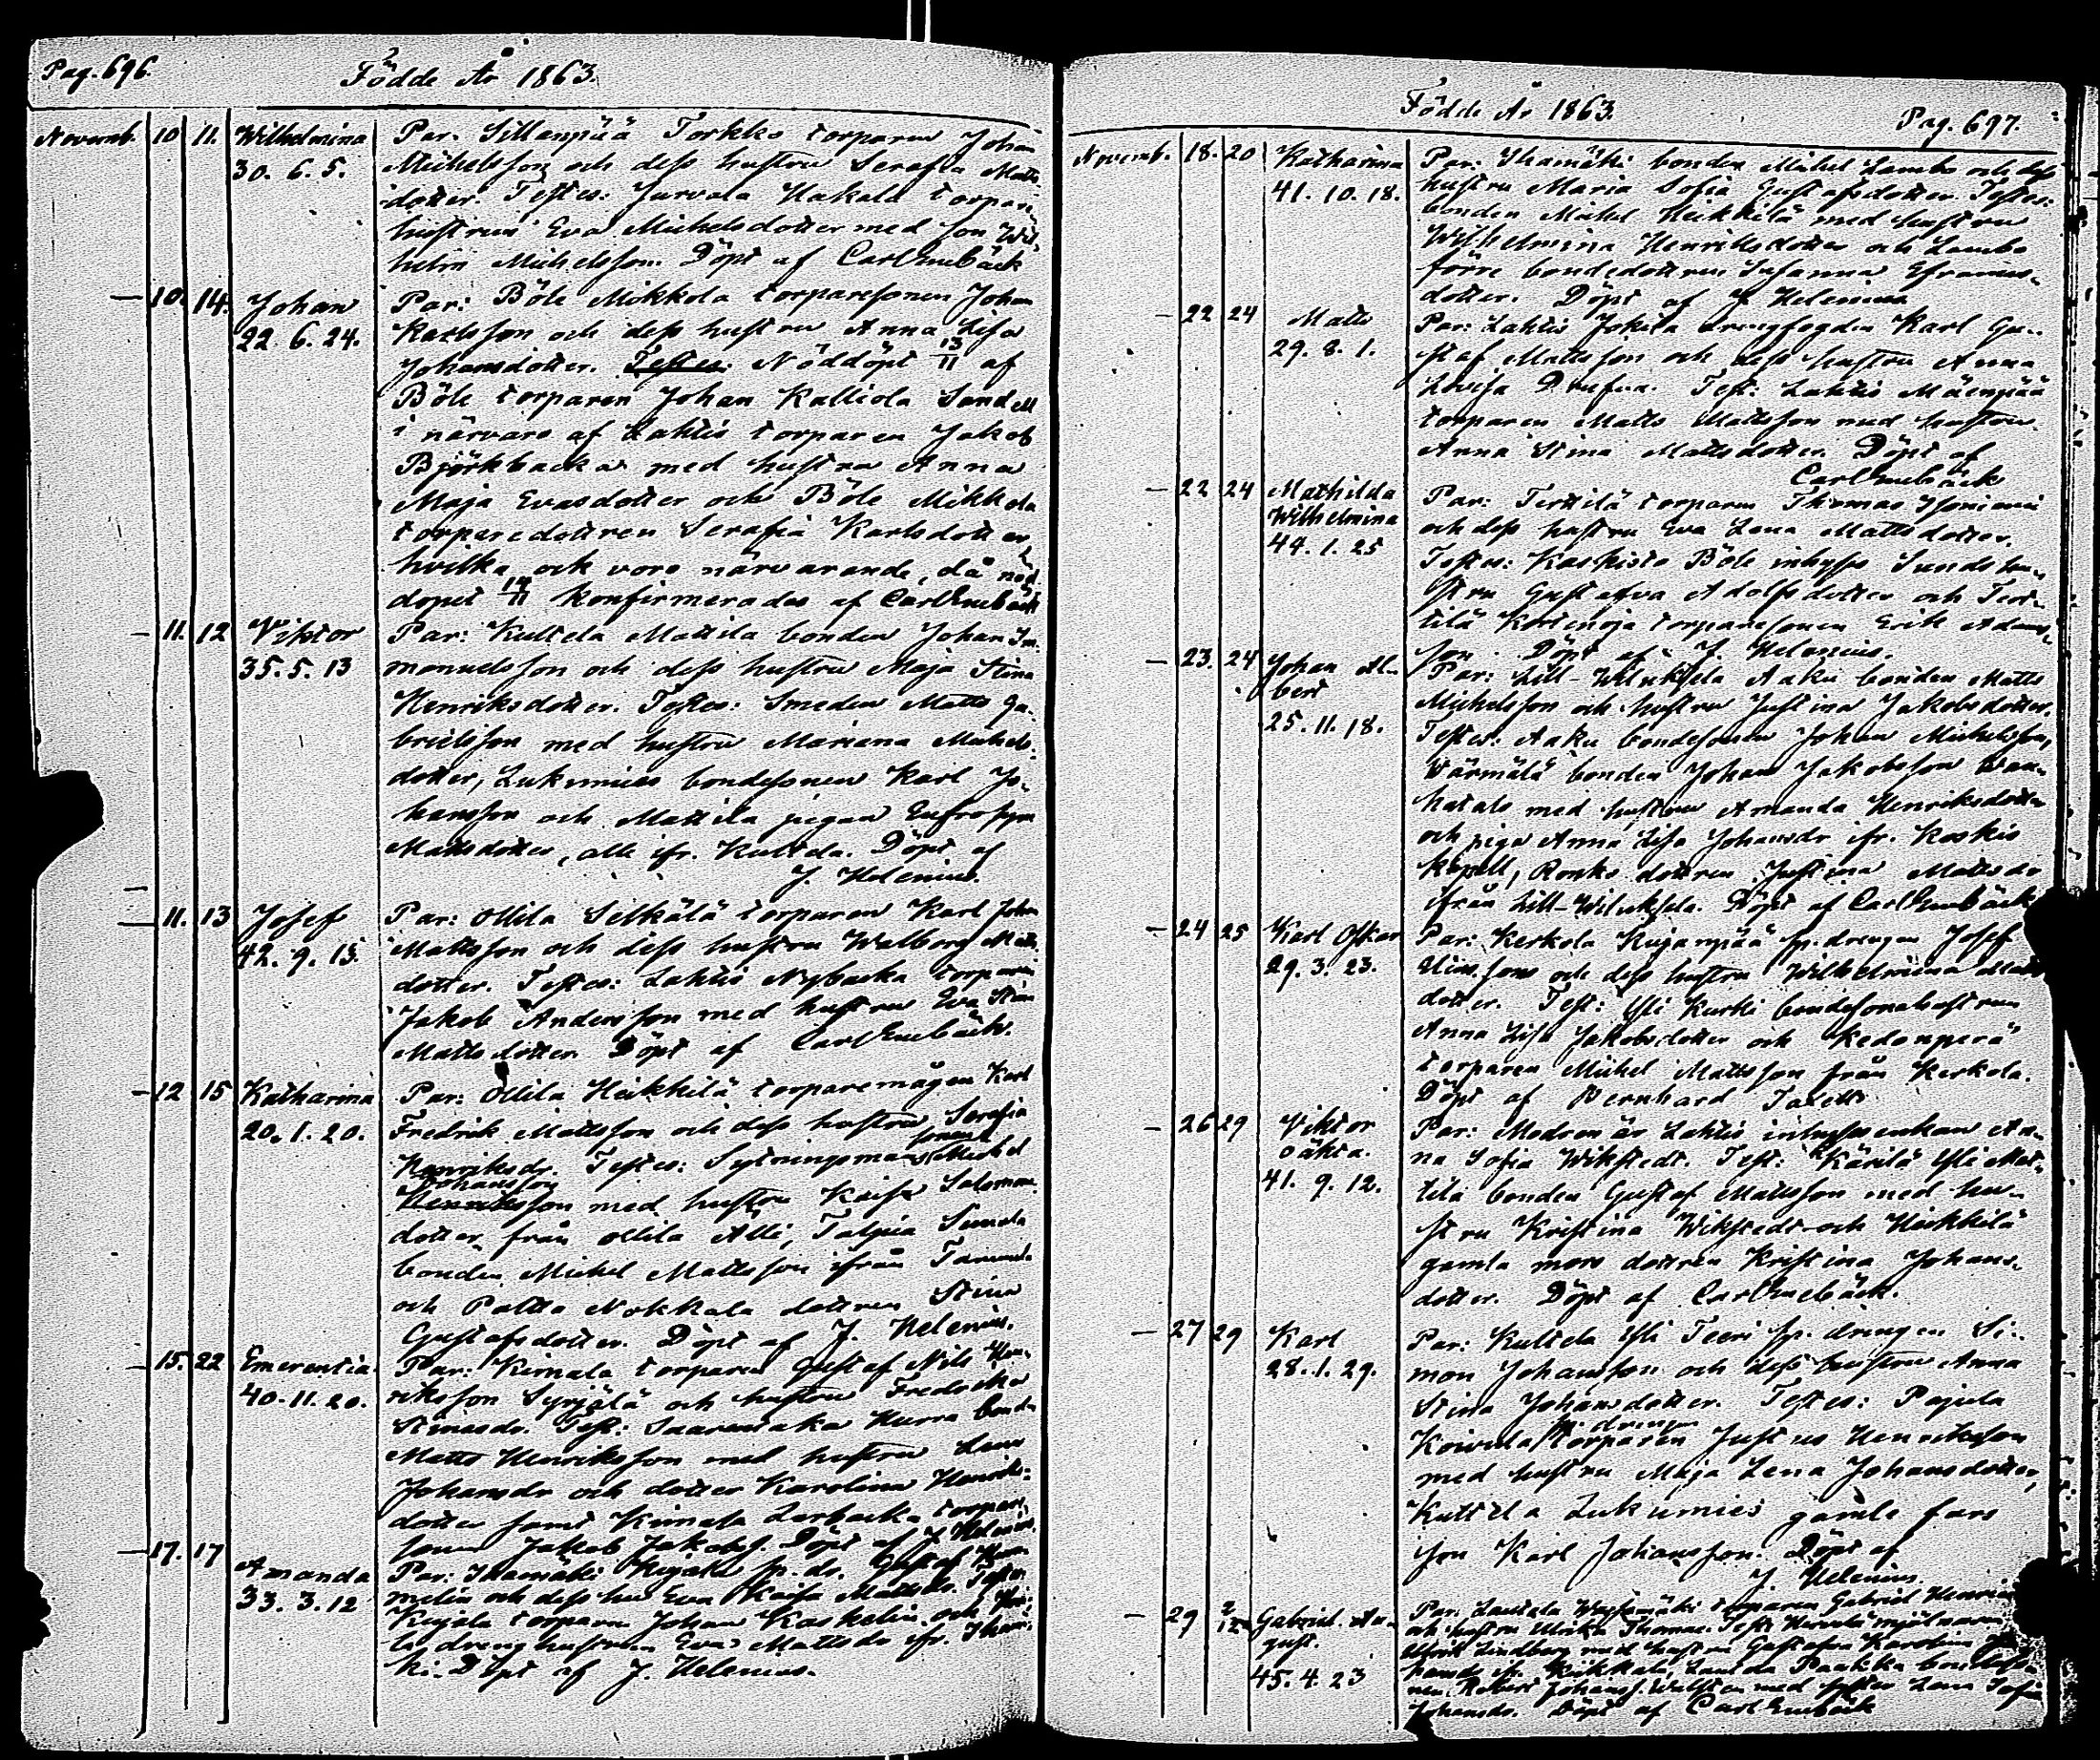 Pag. 696.
Födde År 1863.
Novemb. 10 11. Wilhelmina Par. Sillanpää Torkko torparen Johan
30. 6. 5. Michelsson och dess hustru Serafia Matts-
dotter. Testes: Jurvala Hakala torpare
hustrun Eva Michelsdotter med son Wil-
helm Michelsson. Döpt af Carl Enebäck
— 10. 14. Johan Par: Böle Mikkola torparesonen Johan
22. 6. 24. Karlsson och dess hustru Anna Lisa
Johansdotter. Testes: Nöddöpt 13/11 af
Böle torparen Johan Kalliola Sandell
i närvaro af Lahtis torparen Jakob
Björkbacka med hustru Anna
Maja Evasdotter och Böle Mikkola
torparedottren Serafia Karlsdotter
hvilka ock voro närvarande, då nöd-
dopet 14/11 konfirmerades af Carl Enebäck
— 11. 12 Viktor Par: Kultela Mattila bonden Johan Im-
35. 5. 13 manuelsson och dess hustru Maja Stina
Henriksdotter. Testes: Smeden Matts Ga-
brielsson med hustru Mariana Michels-
dotter, Lukumies bondesonen Karl Jo-
hansson och Mattila pigan Eufrosyna
Mattsdotter, alle ifr. Kultela. Döpt af
J. Helenius.
— 11. 13 Josef Par: Ollila Selkälä torparen Karl Johan
42. 9. 15. Mattsson och dess hustru Walborg Matts-
dotter. Testes: Lahtis Nybacka torparen
Jakob Andersson med hustru Eva Stina
Mattsdotter. Döpt af Carl Enebäck.
— 12 15 Katharina Par: Ollila Heikkilä torparemågen Karl
20. 1. 20. Fredrik Mattsson och dess hustru Serafia
Henriksdr. Testes: Sytningsmans sonen Michel
Johansson
Henriksson med hustru Kaisa Salomons-
dotter från Ollila Alli, Talpia Simola
bonden Michel Mattsson ifrån
och Paltta Nokkala dottren Stina
Gustafsdotter. Döpt af J. Helenius.
— 15. 22 Emerentia Par: Kimala torparen Gustaf Nils Hen-
40. 11. 20. riksson Syrjälä och hustru Fredrika
Simosdr. Test: Hurra bond.
Matts Henriksson med hustru Lena
Johansdr och dotter Karolina Henriks-
dotter samt Kimala torpare-
sonen Jakob Jakobs. Döpt af J. Helenius.
— 17. 17 Amanda Par: Ihamäki Kujala sp. dr. Gustaf
33. 3. 12 och dess hu Eva Kaisa Mattsdr. Testes
Kujala torparen Johan Koskelin och
dreng hustrun Eva Mattsdr ifr. Ihamä-
ki. Döpt af J. Helenius.
Födde År 1863.
Pag. 697.
Novemb. 18. 20 Katharina Par: Ihamäki bonden Michel Lambo och dess
41. 10. 18. hustru Maria Sofia Gustafsdotter. Testes:
bonden Michel Heikkilä med hustru
Wilhelmina Henriksdotter och Lambo
förre bondedottren Susanna Efraims-
dotter. Döpt af J. Helenius
— 22 24 Matts Par: Lahtis Jokila arengfogden Karl Gu-
29. 8. 1. staf Mattsson och dess hustru Anna
Lovisa Drufva. Test: Lahtis Mäenpää
torparen Matts Mattsson med hustru
Anna Stina Mattsdotter. Döpt af
Carl Enebäck
— 22 24 Mathilda Par: Terttilä torparen Thomas Isoniemi
Wilhelmina och dess hustru Eva Lena Mattsdotter.
44. 1. 25 Testes: Koskisto Böle inhyses Sunds hu-
stru Gustafva Adolfsdotter och Tert-
tilä Kortenoja torparesonen Erik Adams-
son. Döpt af J. Helenius.
— 23. 24 Johan Al- Par: Lill-Wiluksela Aaku bonden Matts
bert Michelsson och hustru Justina Jakobsdotter.
25. 11. 18. Testes: Aaku bondesonen Johan Michelsson,
Wärmälä bonden Johan Jakobsson Wan-
hatalo med hustru Amanda Henriksdotter
och piga Anna Lisa Johansdr ifr. Koskis
kapell, Ronko dottren Justina Mattsdr
ifrån Lill-Wiluksela. Döpt af Carl Enebäck
— 24 25 Karl Oskar Par: Kerkola Kujanpää sp. drengen Josef
29. 3. 23. Eliasson och dess hustru Wilhelmina Matts-
dotter. Test: Yli Kurki bondesonahustrun
Anna Lisa Jakobsdotter och Kedonperä
torparen Michel Mattsson från Kerkola.
Döpt af Bernhard
— 26 29 Viktor Par: Modren är Lahtis inhysesenkan An-
oäkta. na Sofia Wikstedt. Test: Kärilä Yli Mat-
41. 9. 12. tila bonden Gustaf Mattsson med hu-
stru Kristina Wikstedt och Heikkilä
gamla mors dottren Kristina Johans-
dotter. Döpt af Carl Enebäck.
— 27 29 Karl Par: Kultela Yli Teeri sp. drengen Si-
28. 1. 29. mon Johansson och dess hustru Anna
Stina Johansdotter. Testes: Pajula
sp. drengen
Koivula torparen Justus Henriksson
med hustru Maja Lena Johansdotter,
Kultela Lukumies gamle fars
son Karl Johansson. Döpt af
J. Helenius.
— 29 2/12 Gabriel Au- Par: Lautela torparen Gabriel Henriks
gust. och hustru Ulrika Thomas. Test:
45. 4. 23 Lindberg med hustru Gustafva Karolina
ifr. Kikkala, Lautela bondeso-
nen Robert Johans. med syster Lena Sofia
Johansdr. Döpt af Carl Enebäck